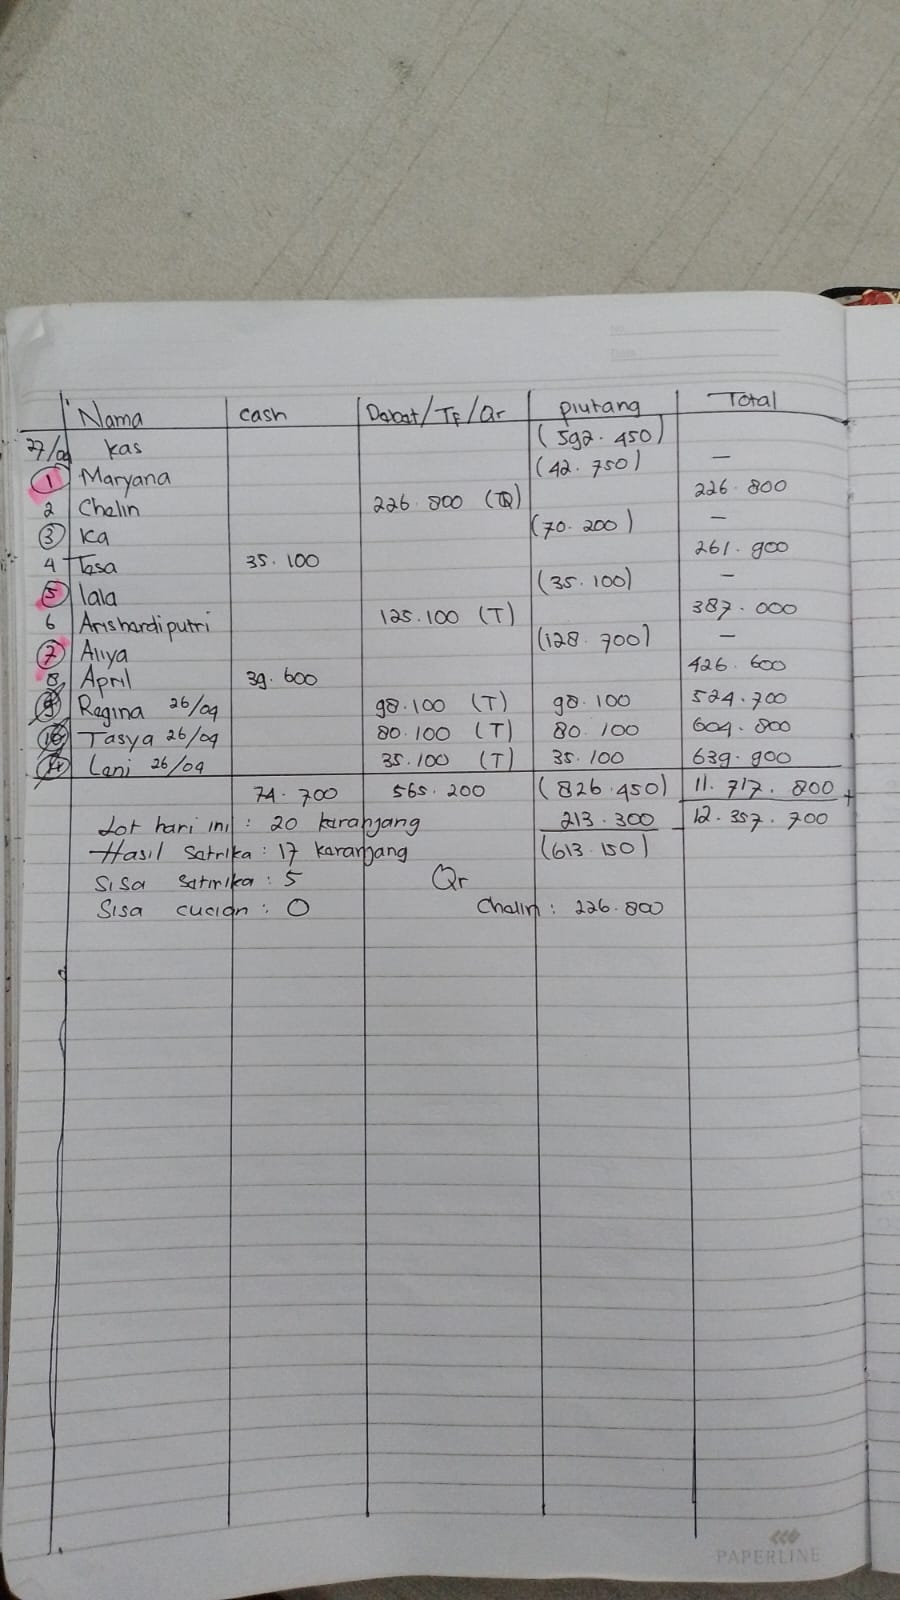 No.
Date
Nama cash Debat/TF/Qr piutang Total
27/09 kas (592.450)
1 Maryana (42.750) —
2 Chelin 226.800 (Q) 226.800
3 Ka (70.200) —
4 Tasa 35.100 261.900
5 lala (35.100) —
6 Arishardiputri 125.100 (T) 387.000
7 Aliya (128.700) —
8 April 39.600 426.600
9 Regina 26/09 98.100 (T) 98.100 524.700
10 Tasya 26/09 80.100 (T) 80.100 604.800
11 Leni 26/09 35.100 (T) 35.100 639.900
74.700 565.200 (826.450) 11.717.800 +
Lot hari ini : 20 keranjang 213.300 12.357.700
Hasil Satrika : 17 keranjang (613.150)
Sisa Satirika : 5 Qr
Sisa cucian : 0 Chelin : 226.800
PAPERLINE